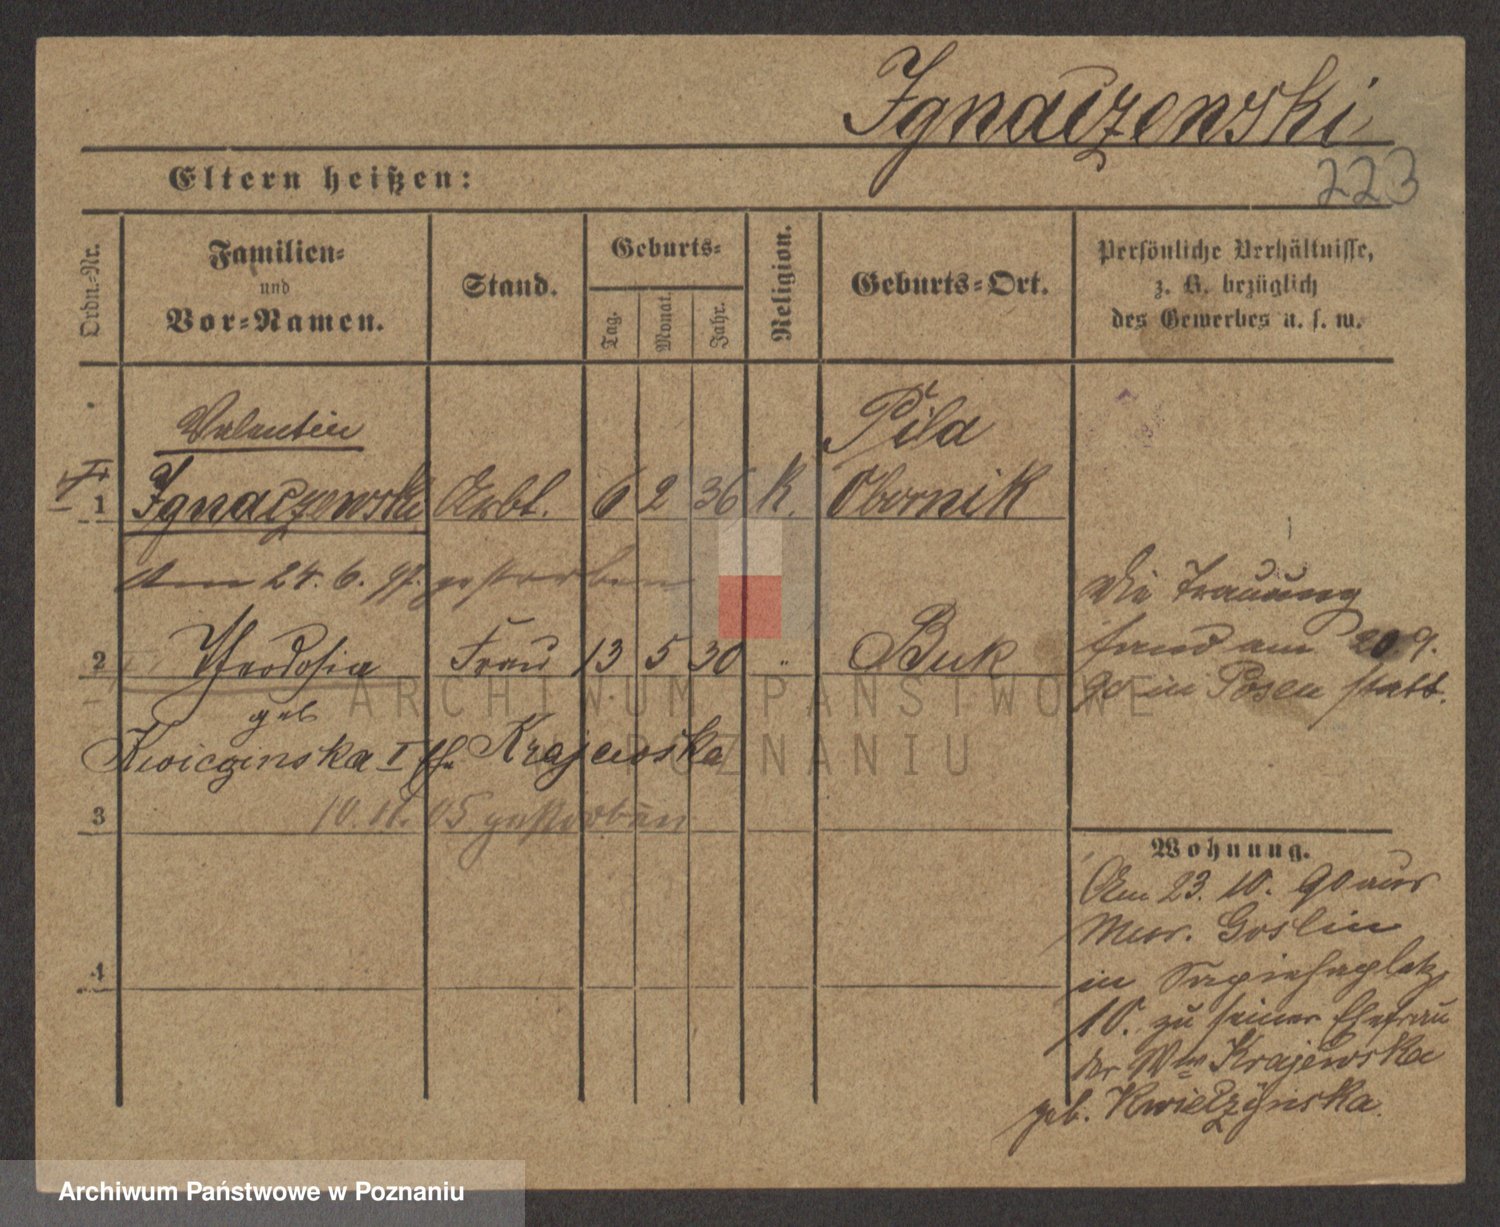 Ignaczewski
223
Eltern heißen:
Ordn.-Nr.
Familien-
und
Vor-Namen.
Stand.
Geburts-
Tag.
Monat.
Jahr.
Religion.
Geburts-Ort.
Persönliche Verhältnisse,
z. B. bezüglich
des Gewerbes u. s. w.
Valentin
Pila
1 Ignaczewski Arbt. 6 2 36 K. Obornik
Am 24. 6. 97. gestorben
2 Theodosia Frau 13 5 30 " Buk
geb
Kwiecinska I Krajewska
3 10. 11. 05 gestorben
4
Die Trauung
fand am 20. 9.
90 in Posen statt.
Wohnung.
Am 23. 10. 90 aus
Mur. Goslin
in Sapiehaplatz
10. zu seiner Ehefrau
der Ww Krajewska
geb. Kwieczynska.
ARCHIWUM PAŃSTWOWE
W POZNANIU
Archiwum Państwowe w Poznaniu